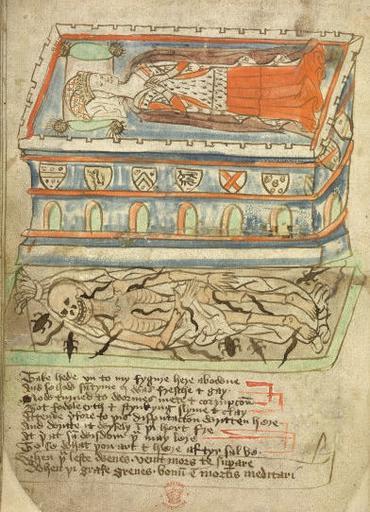 Take hede un to my fygure here abowne
And se how sumtyme I was fressche & gay
Now turned to wormes mete & corrupcoun
Bot fowle erth & stynkyng slyme & clay
Attende therfore to this disputacion written here
And writte it wysely in þi hert fre
At þat sum wisdom þu may lere
To se what þou art & here aftyr sal be.
When þu leste wenes. venit mors te superare
When þi grafe grenes. bonum est mortis meditari